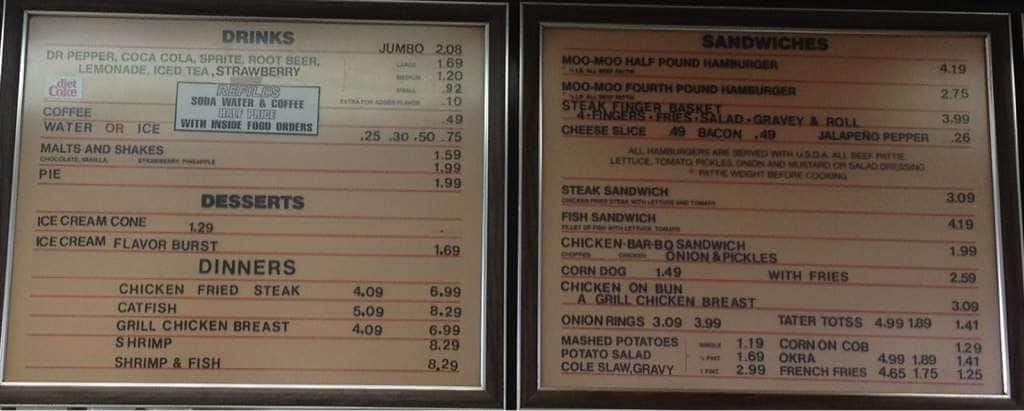 DRINKS
JUMBO 2.08
DR PEPPER, COCA COLA, SPRITE, ROOT BEER, LARGE 1.69
LEMONADE, ICED TEA, STRAWBERRY MEDIUM 1.20
diet Coke
SMALL .92
REFILLS
SODA WATER & COFFEE
HALF PRICE
WITH INSIDE FOOD ORDERS
EXTRA FOR ADDED FLAVOR .10
COFFEE .49
WATER OR ICE .25 .30 .50 .75
MALTS AND SHAKES 1.59
CHOCOLATE, VANILLA, STRAWBERRY, PINEAPPLE 1.99
PIE 1.99
DESSERTS
ICE CREAM CONE 1.29
ICE CREAM FLAVOR BURST 1.69
DINNERS
CHICKEN FRIED STEAK 4.09 6.99
CATFISH 5.09 8.29
GRILL CHICKEN BREAST 4.09 6.99
SHRIMP 8.29
SHRIMP & FISH 8.29
SANDWICHES
MOO-MOO HALF POUND HAMBURGER 4.19
½ LB. ALL BEEF PATTIE
MOO-MOO FOURTH POUND HAMBURGER 2.75
¼ LB. ALL BEEF PATTIE
STEAK FINGER BASKET
4-FINGERS-FRIES-SALAD-GRAVEY & ROLL 3.99
CHEESE SLICE .49 BACON .49 JALAPEÑO PEPPER .26
ALL HAMBURGERS ARE SERVED WITH U.S.D.A. ALL BEEF PATTIE,
LETTUCE, TOMATO PICKLES, ONION AND MUSTARD OR SALAD DRESSING
* PATTIE WEIGHT BEFORE COOKING
STEAK SANDWICH 3.09
CHICKEN FRIED STEAK WITH LETTUCE AND TOMATO
FISH SANDWICH 4.19
FILLET OF FISH WITH LETTUCE, TOMATO
CHICKEN-BAR-BQ SANDWICH 1.99
CHOPPED CHICKEN ONION & PICKLES
CORN DOG 1.49 WITH FRIES 2.59
CHICKEN ON BUN
A GRILL CHICKEN BREAST 3.09
ONION RINGS 3.09 3.99 TATER TOTSS 4.99 1.89 1.41
MASHED POTATOES SINGLE 1.19 CORN ON COB 1.29
POTATO SALAD ½ PINT 1.69 OKRA 4.99 1.89 1.41
COLE SLAW, GRAVY 1 PINT 2.99 FRENCH FRIES 4.65 1.75 1.25